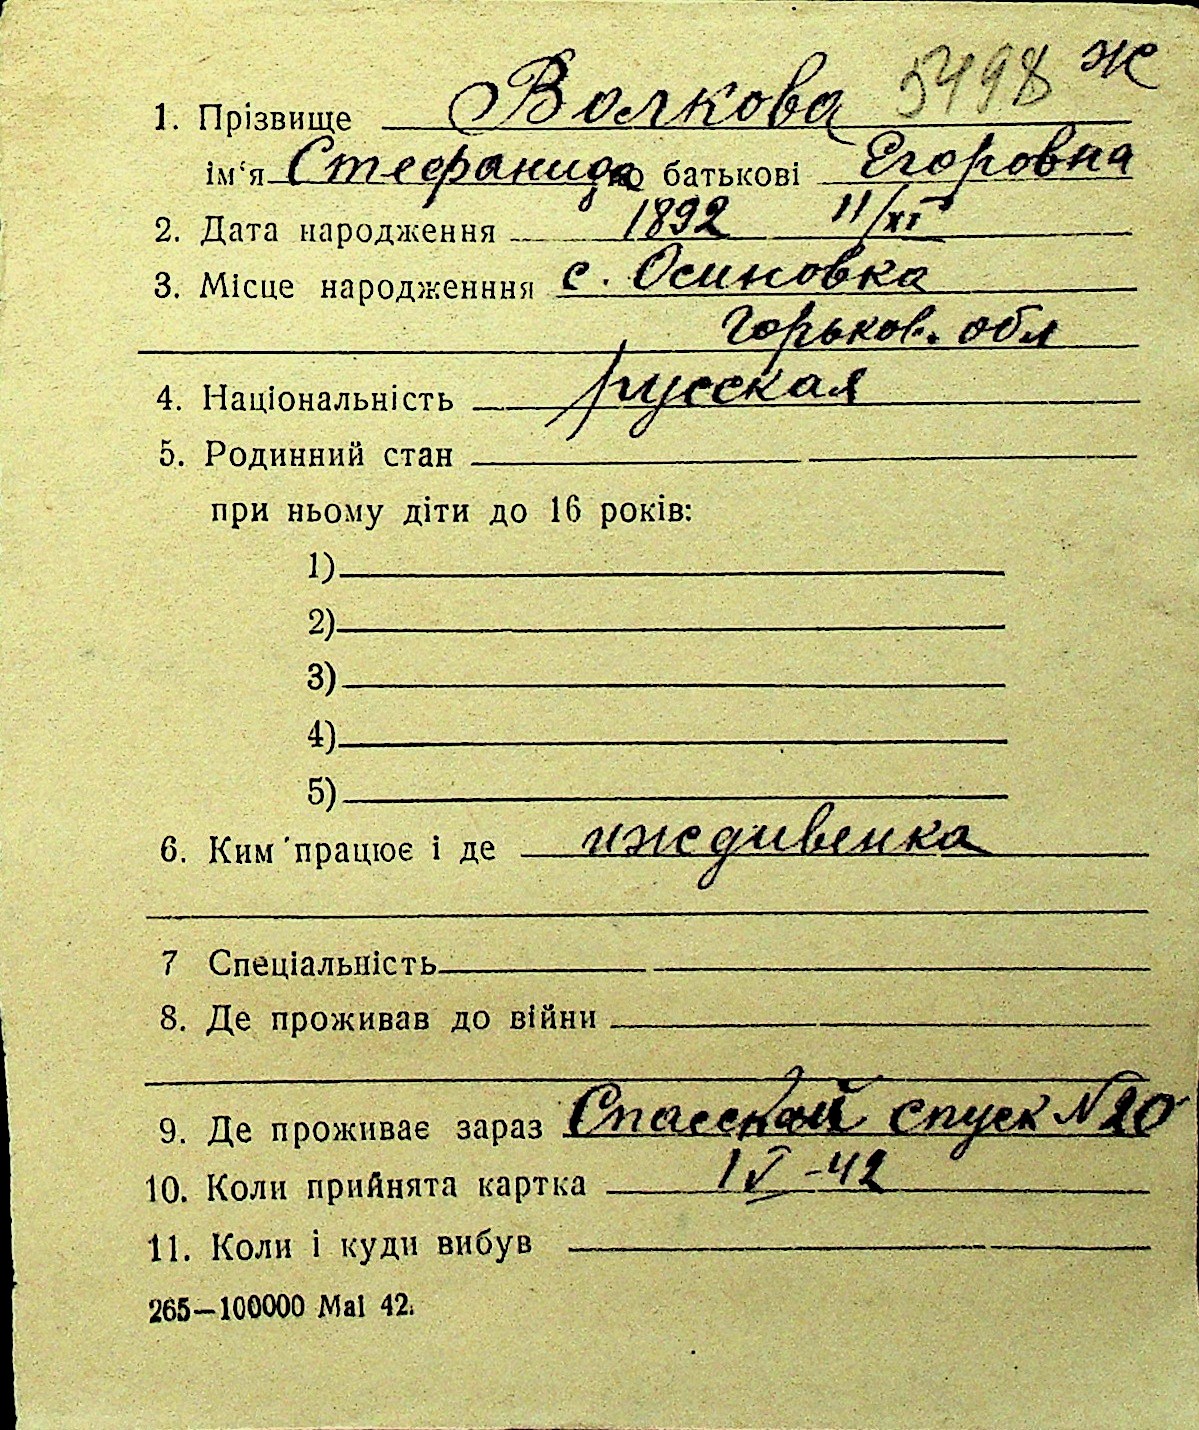 5498 ж
1. Прізвище Волкова
ім‘я Стефанида по батькові Егоровна
2. Дата народження 1892 11/XI
3. Місце народженння с. Осиновка
Горьков. обл
4. Національність русская
5. Родинний стан
при ньому діти до 16 років:
1)
2)
3)
4)
5)
6. Ким працює і де иждивенка
7 Спеціальність
8. Де проживав до війни
9. Де проживає зараз Спасской спуск №20
10. Коли прийнята картка 1 V -42
11. Коли і куди вибув
265—100000 Mai 42.